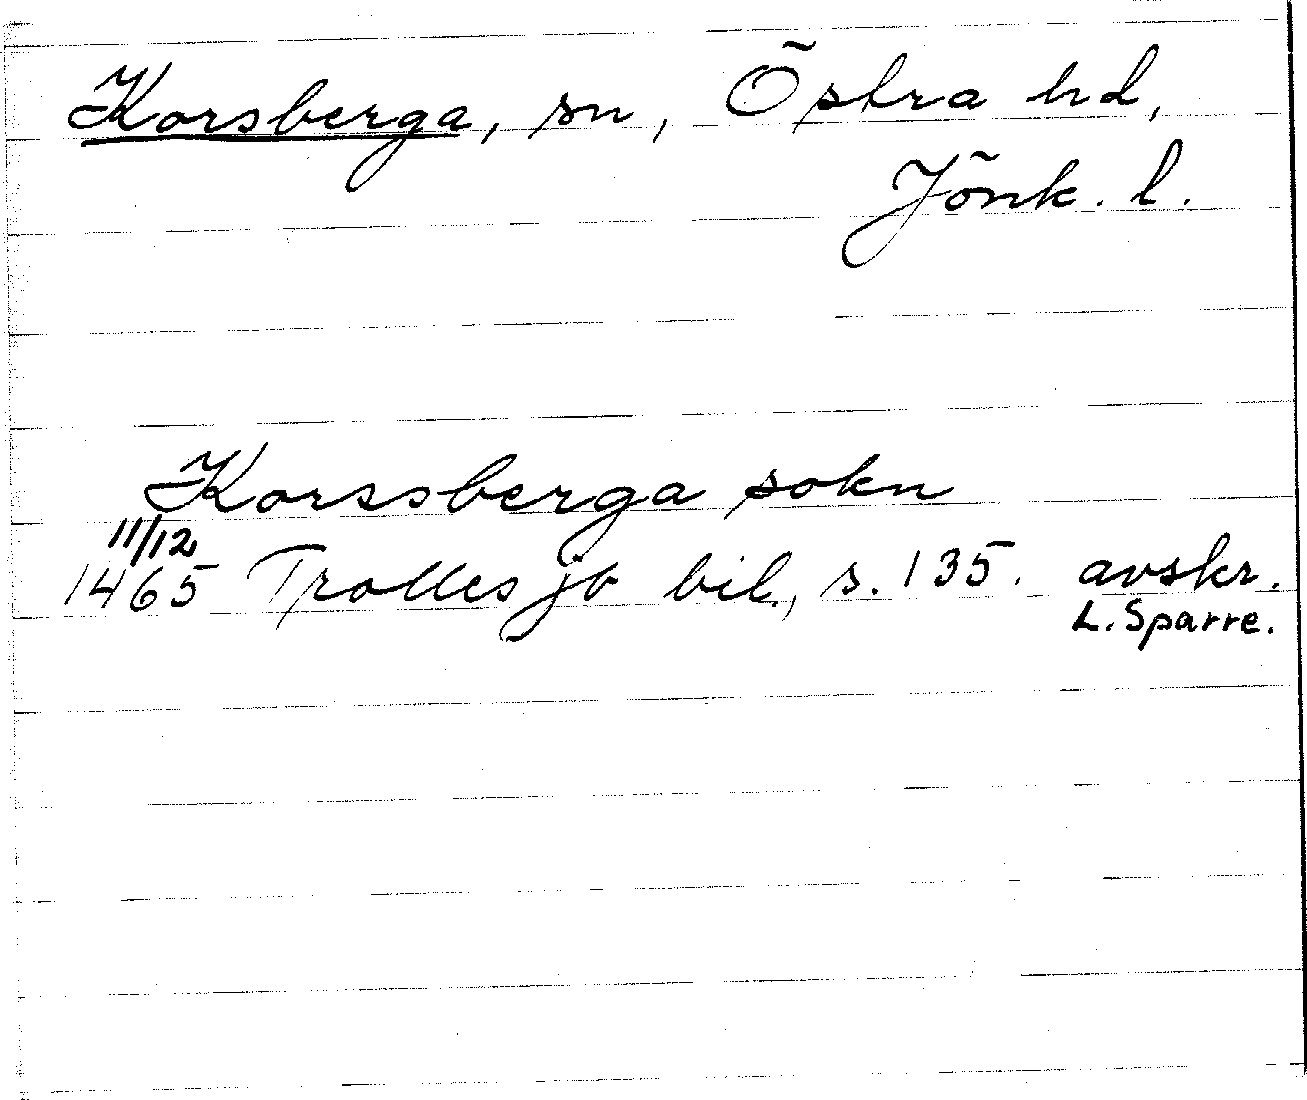 Korsberga, sn, Östra hd,
Jönk. l.
Korssberga sokn
11/12
1465 Trolles jb bil., s. 135. avskr.
L. Sparre.